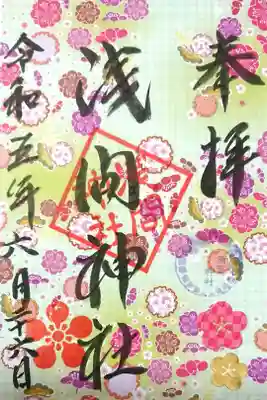 奉拝
浅間神社
令和五年六月二十六日